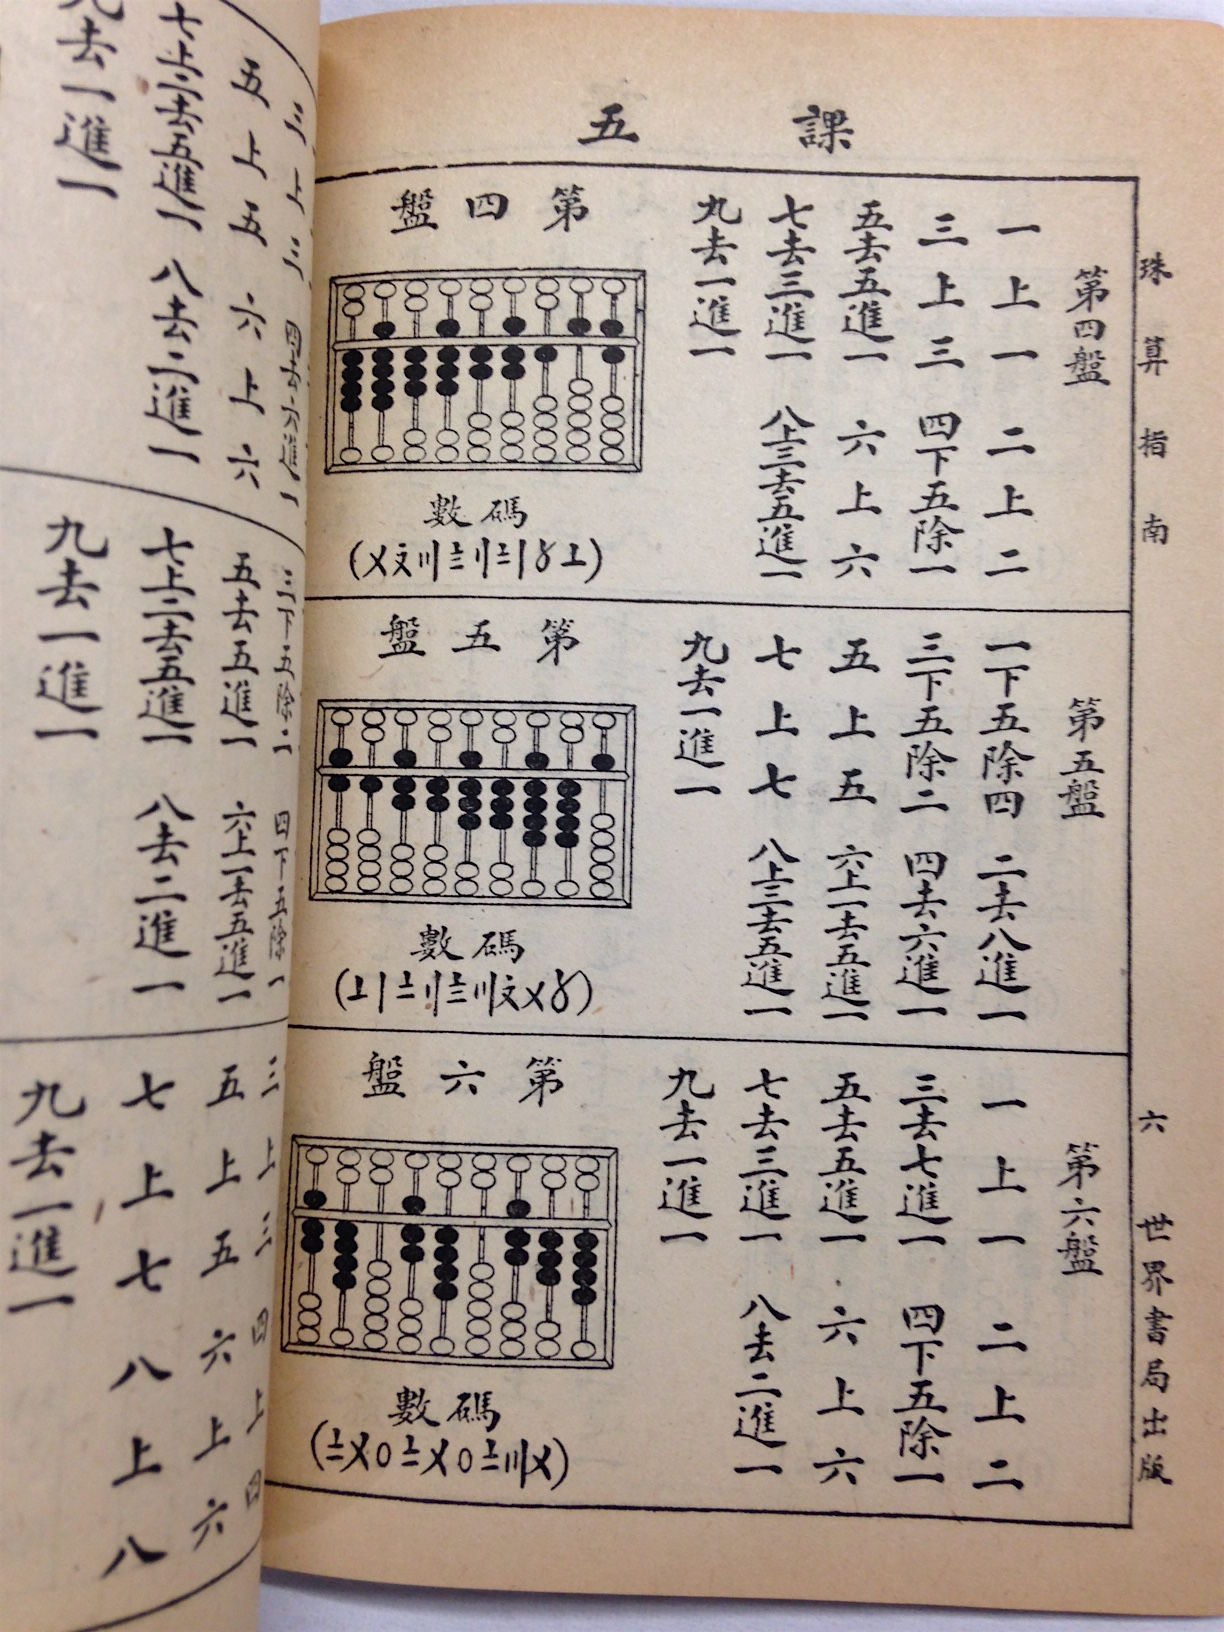 珠算指南 六 世界書局出版
課五
第四盤
一上一 二上二
三上三 四下五除一
五去五進一 六上六
七去三進一 八上三去五進一
九去一進一
第四盤
數碼
(〤〩〣〨〢〧〡〥〦)
第五盤
一下五除四 二去八進一
三下五除二 四去六進一
五上五 六上一去五進一
七上七 八上三去五進一
九去一進一
第五盤
數碼
(〦〡〧〢〨〣〩〤〥)
第六盤
一上一 二上二
三去七進一 四下五除一
五去五進一 六上六
七去三進一 八去二進一
九去一進一
第六盤
數碼
(〧〤〇〧〤〇〧〣〤)
三上三 四去六進一
五上五 六上六
七上二去五進一 八去二進一
九去一進一
三下五除二 四下五除一
五去五進一 六上一去五進一
七上二去五進一 八去二進一
九去一進一
三上三 四上四
五上五 六上六
七上七 八上八
九去一進一